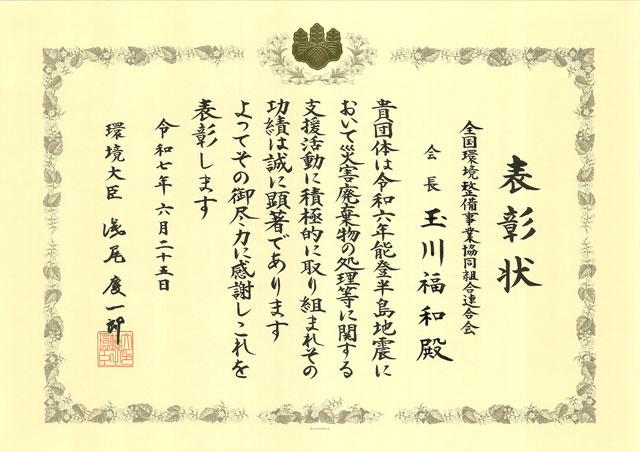 表彰状
全国環境整備事業協同組合連合会
会長 玉川福和殿
貴団体は令和六年能登半島地震に
おいて災害廃棄物の処理等に関する
支援活動に積極的に取り組まれその
功績は誠に顕著であります
よってその御尽力に感謝しこれを
表彰します
令和七年六月二十五日
環境大臣 浅尾慶一郎